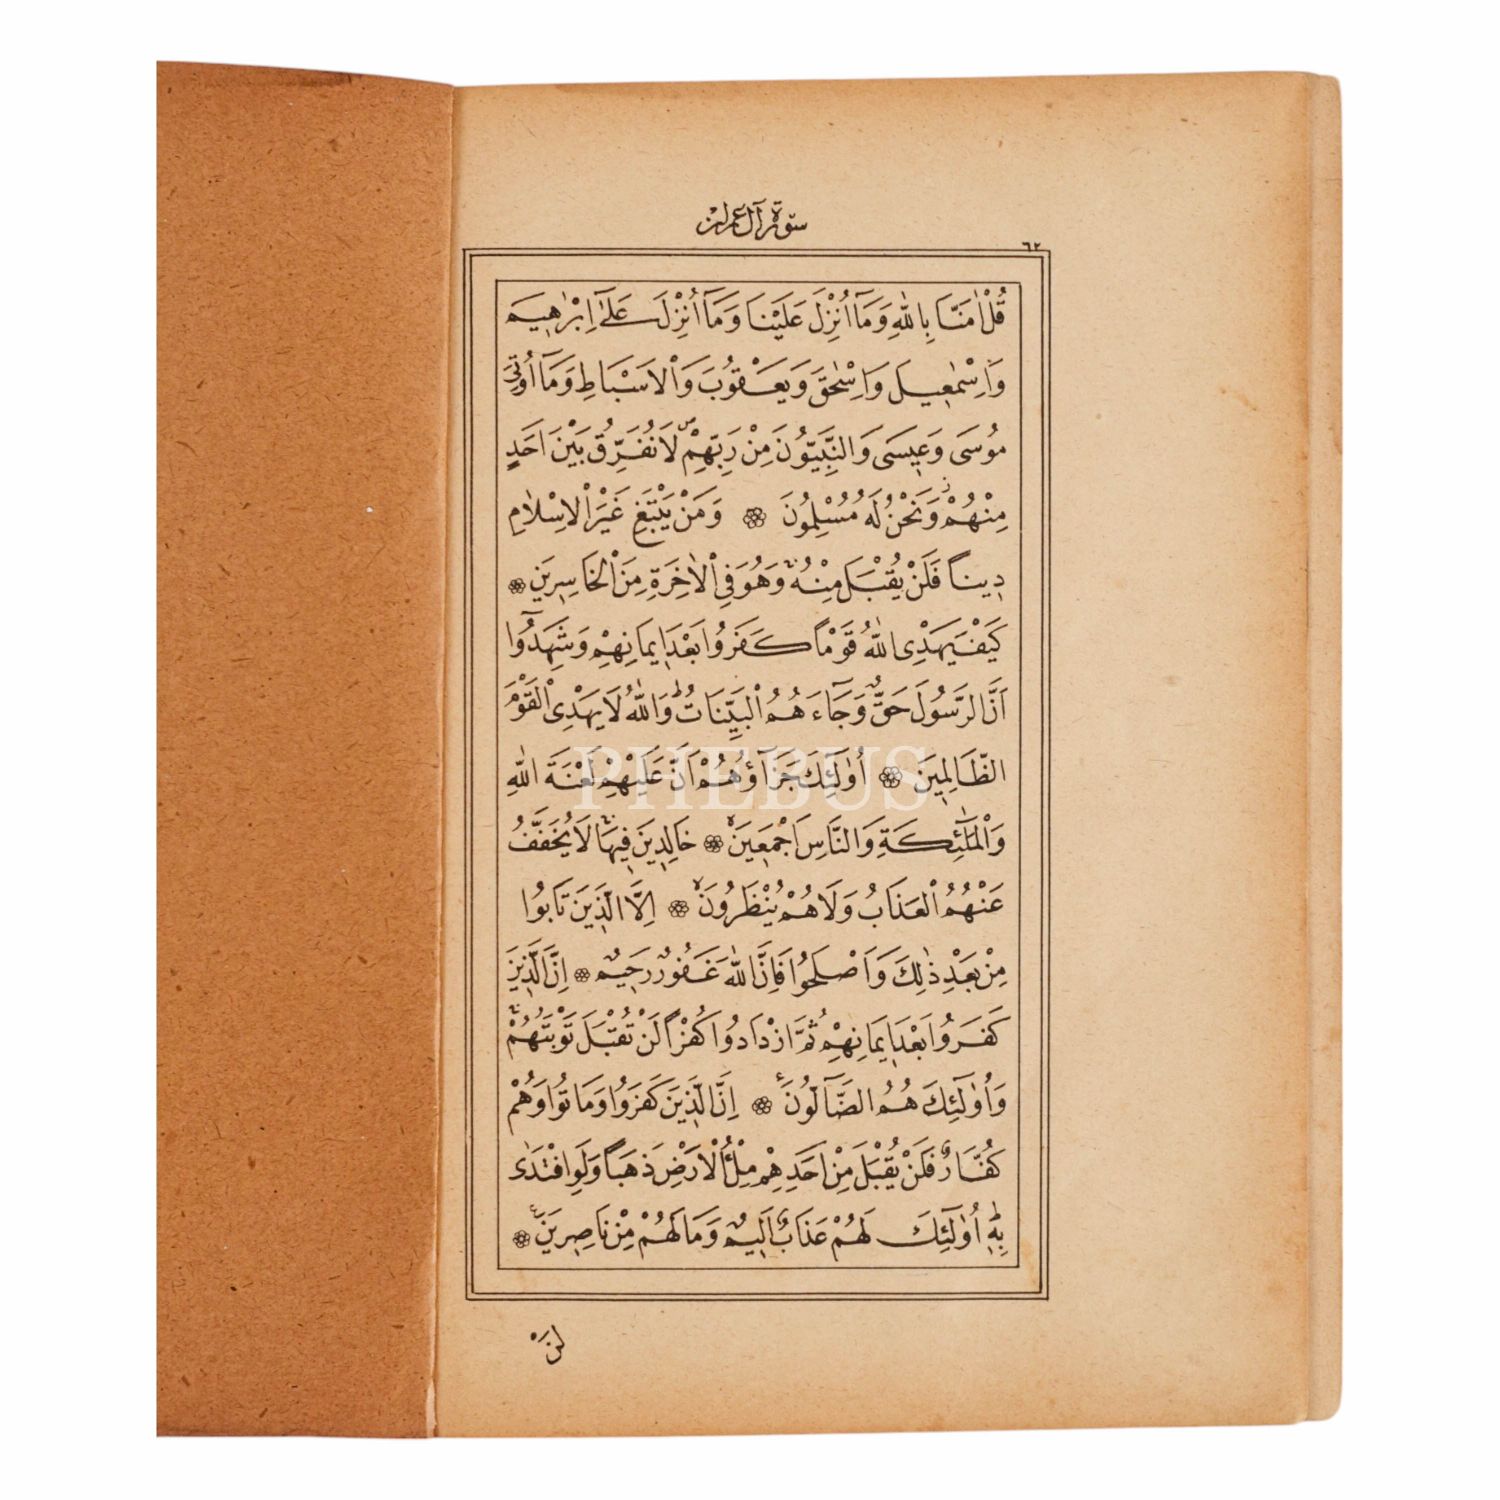 سورة آل عمران
٦٢
قُلْ اٰمَنَّا بِاللّٰهِ وَمَٓا اُنْزِلَ عَلَيْنَا وَمَٓا اُنْزِلَ عَلٰٓى اِبْرٰهٖيمَ
وَاِسْمٰعٖيلَ وَاِسْحٰقَ وَيَعْقُوبَ وَالْاَسْبَاطِ وَمَٓا اُوتِيَ
مُوسٰى وَعٖيسٰى وَالنَّبِيُّونَ مِنْ رَبِّهِمْۖ لَا نُفَرِّقُ بَيْنَ اَحَدٍ
مِنْهُمْۘ وَنَحْنُ لَهُ مُسْلِمُونَ ۞ وَمَنْ يَبْتَغِ غَيْرَ الْاِسْلَامِ
دٖينًا فَلَنْ يُقْبَلَ مِنْهُۚ وَهُوَ فِي الْاٰخِرَةِ مِنَ الْخَاسِرٖينَ ۞
كَيْفَ يَهْدِي اللّٰهُ قَوْمًا كَفَرُوا بَعْدَ اٖيمَانِهِمْ وَشَهِدُٓوا
اَنَّ الرَّسُولَ حَقٌّ وَجَٓاءَهُمُ الْبَيِّنَاتُۜ وَاللّٰهُ لَا يَهْدِي الْقَوْمَ
الظَّالِمٖينَ ۞ اُو۬لٰٓئِكَ جَزَٓاؤُ۬هُمْ اَنَّ عَلَيْهِمْ لَعْنَةَ اللّٰهِ
وَالْمَلٰٓئِكَةِ وَالنَّاسِ اَجْمَعٖينَۙ ۞ خَالِدٖينَ فٖيهَاۚ لَا يُخَفَّفُ
عَنْهُمُ الْعَذَابُ وَلَا هُمْ يُنْظَرُونَۙ ۞ اِلَّا الَّذٖينَ تَابُوا
مِنْ بَعْدِ ذٰلِكَ وَاَصْلَحُوا فَاِنَّ اللّٰهَ غَفُورٌ رَحٖيمٌ ۞ اِنَّ الَّذٖينَ
كَفَرُوا بَعْدَ اٖيمَانِهِمْ ثُمَّ ازْدَادُوا كُفْرًا لَنْ تُقْبَلَ تَوْبَتُهُمْۚ
وَاُو۬لٰٓئِكَ هُمُ الضَّٓالُّونَ ۞ اِنَّ الَّذٖينَ كَفَرُوا وَمَاتُوا وَهُمْ
كُفَّارٌ فَلَنْ يُقْبَلَ مِنْ اَحَدِهِمْ مِلْءُ الْاَرْضِ ذَهَبًا وَلَوِ افْتَدٰى
بِهٖۜ اُو۬لٰٓئِكَ لَهُمْ عَذَابٌ اَلٖيمٌ وَمَا لَهُمْ مِنْ نَاصِرٖينَ ۞
لَنْ
PHEBUS